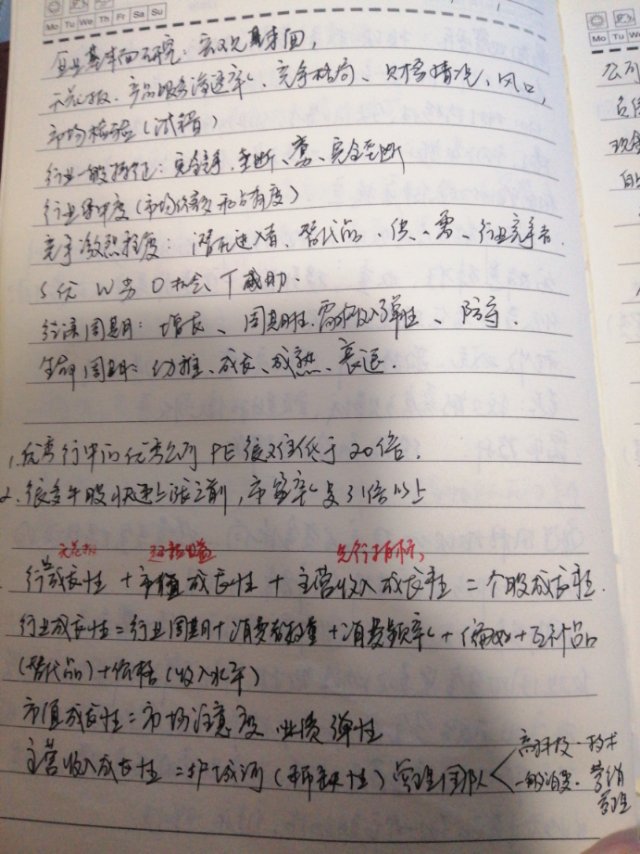 Mo Tu We Th Fr Sa Su
Mo Tu We
企业基本面研究：宏观基本面，
天花板、产品服务渗透率、竞争格局、财务情况、风口，
市场检验（试错）
行业一般特征：完全竞争、垄断、寡、完全垄断
行业集中度（市场份额 占有度）
竞争激烈程度：潜在进入者、替代品、供、需、行业竞争者.
S优 W劣 O机会 T威胁.
经济周期：增长、周期性 需求收入弹性、防守.
生命周期：幼稚、成长、成熟、衰退.
1.优秀行中的优秀公司 PE很难低于20倍.
2.很多牛股快速上涨之前，市盈率多31倍以上
天花板 先行指标
行业成长性 + 市值成长性 + 主营收入成长性 = 个股成长性.
行业成长性=行业周期+消费者数量+消费频率+偏好+互补品
(替代品)+价格(收入水平)
市值成长性=市场注意度 业绩弹性
主营收入成长性 =护城河(稀缺性) 管理团队 高科技·技术
一般消费·营销
管理
公司